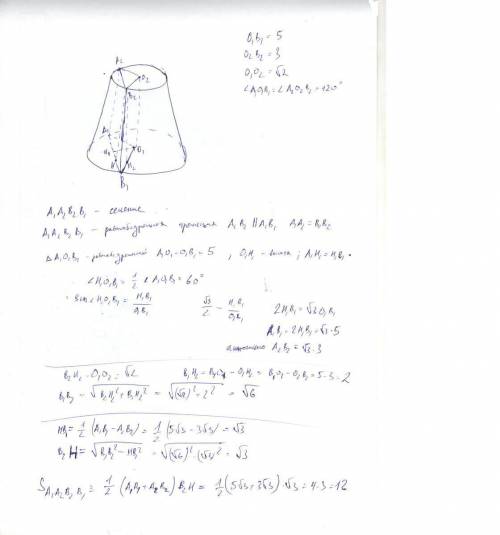 O₁B₁ = 5
O₂B₂ = 3
O₁O₂ = √2
∠A₁O₁B₁ = ∠A₂O₂B₂ = 120°
A₂
O₂
B₂
A₁
H₁
O₁
H₂
B₁
A₁A₂B₂B₁ - сечение
A₁A₂B₂B₁ - равнобедренная трапеция A₂B₂ || A₁B₁ A₁A₂ = B₁B₂
△A₁O₁B₁ - равнобедренный A₁O₁ = O₁B₁ = 5 , O₁H₁ - высота ; A₁H₁ = H₁B₁
∠H₁O₁B₁ = 1/2 ∠A₁O₁B₁ = 60°
sin ∠H₁O₁B₁ = H₁B₁/O₁B₁ √3/2 = H₁B₁/O₁B₁ 2H₁B₁ = √3 O₁B₁
A₁B₁ = 2H₁B₁ = √3 · 5
аналогично A₂B₂ = √3 · 3
B₂H₂ = O₁O₂ = √2 B₁H₂ = B₁O₁ - O₁H₂ = B₁O₁ - O₂B₂ = 5 - 3 = 2
B₁B₂ = √(B₂H₂² + B₁H₂²) = √((√2)² + 2²) = √6
HB₁ = 1/2 (A₁B₁ - A₂B₂) = 1/2 (5√3 - 3√3) = √3
B₂H = √(B₁B₂² - HB₁²) = √((√6)² - (√3)²) = √3
S A₁A₂B₂B₁ = 1/2 (A₁B₁ + A₂B₂) B₂H = 1/2 (5√3 + 3√3) · √3 = 4 · 3 = 12